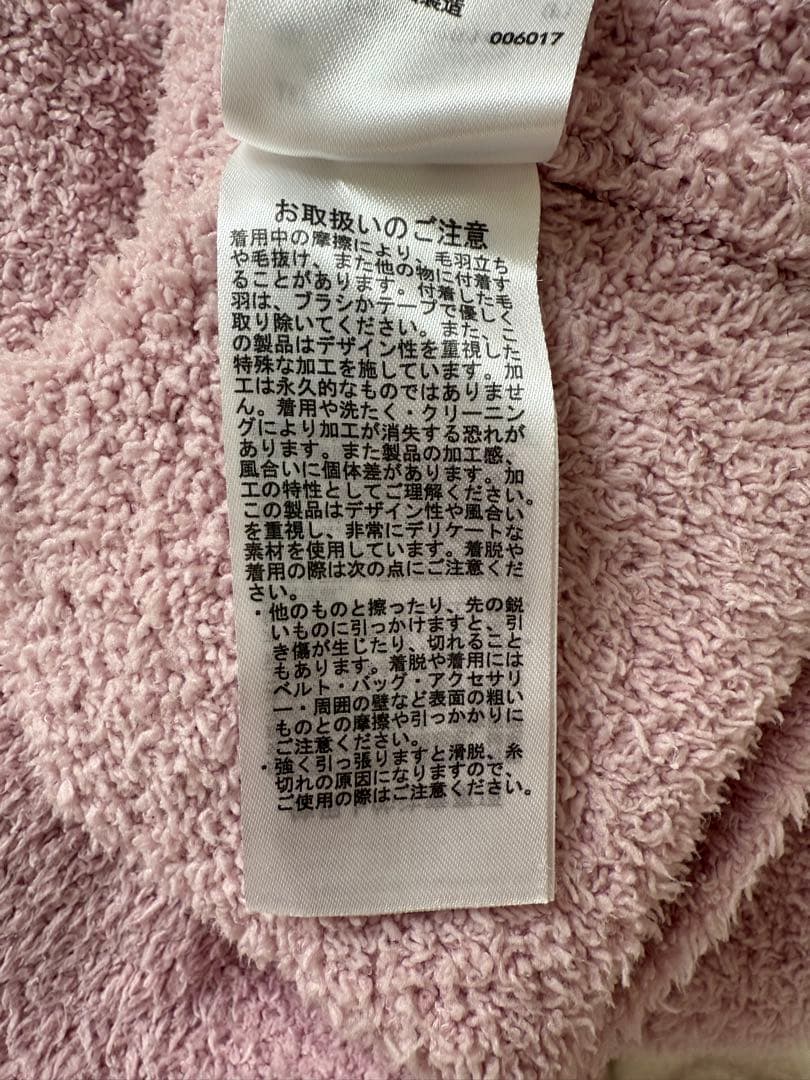 製造
006017
お取扱いのご注意
着用中の摩擦により、毛羽立ち
や毛抜け、また他の物に付着す
ることがあります。付着した毛
羽は、ブラシかテープで優しく
取り除いてください。また、こ
の製品はデザイン性を重視した
特殊な加工を施しています。加
工は永久的なものではありませ
ん。着用や洗たく・クリーニン
グにより加工が消失する恐れが
あります。また製品の加工感、
風合いに個体差があります。加
工の特性としてご理解ください。
この製品はデザイン性や風合い
を重視し、非常にデリケートな
素材を使用しています。着脱や
着用の際は次の点にご注意くだ
さい。
・他のものと擦ったり、先の鋭
いものに引っかけますと、引
き傷が生じたり、切れること
もあります。着脱や着用には
ベルト・バッグ・アクセサリ
ー・周囲の壁など表面の粗い
ものとの摩擦や引っかかりに
ご注意ください。
・強く引っ張りますと滑脱、糸
切れの原因になりますので、
ご使用の際はご注意ください。